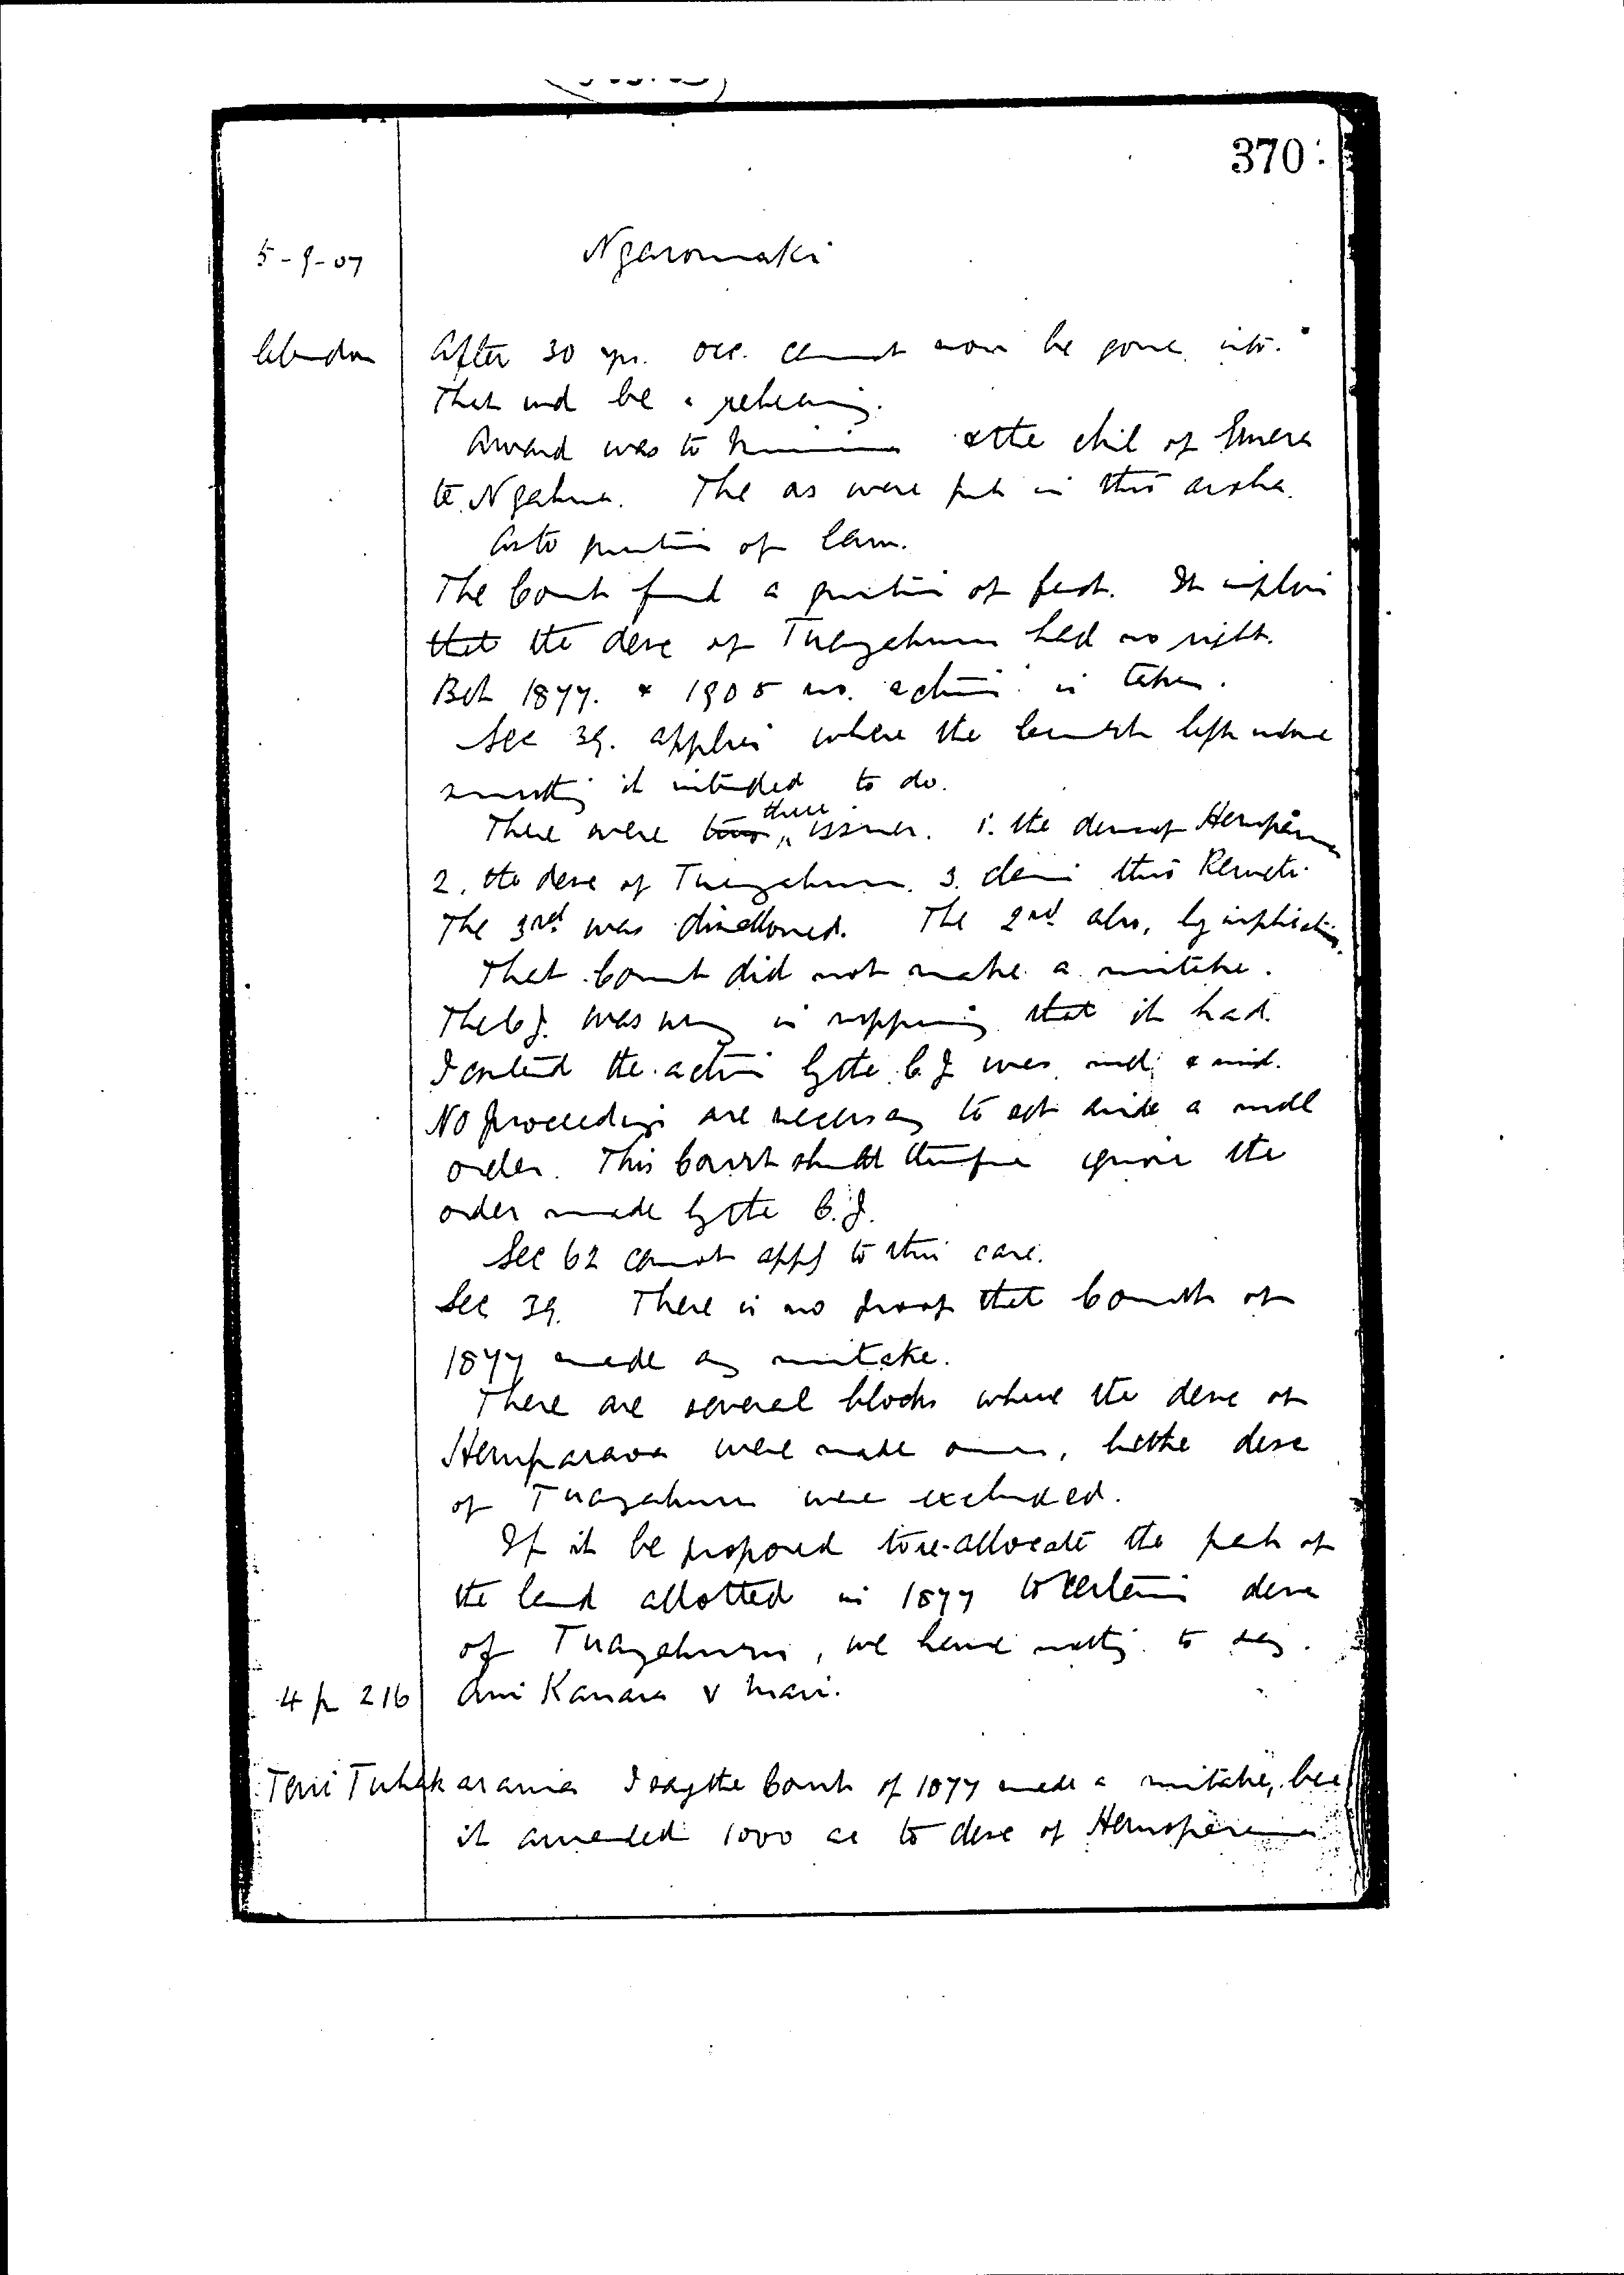 370
5-9-07
Ngaromaki
After 30 yrs. occ. cannot now be gone into.
That wd be a rehearing.
Award was to & the chil of Emera
te Ngahua. The as were put in thro aroha.
As to question of law.
The Court found a question of fact. It implies
that the desc of Tuangahuru had no right.
Bet 1877. & 1905 no. action is taken.
Sec 39. applies where the Court left undone
something it intended to do.
There were two three issues. 1. the desc of Heruparawa
2. the desc of Tuangahuru. 3. claim thro
The 3rd was disallowed. The 2nd also, by implication.
That Court did not make a mistake.
The C.J. was wrong in supposing that it had.
I contend the action by the C.J was null & void.
No proceedings are necessary to set aside a null
order. This Court should therefore ignore the
order made by the C.J.
Sec 62 cannot apply to this case.
Sec 39. There is no proof that Court of
1877 made any mistake.
There are several blocks where the desc of
Heruparawa were made owners, but the desc
of Tuangahuru were excluded.
If it be proposed to re-allocate the part of
the land allotted in 1877 to certain desc
of Tuangahuru, we have nothing to say.
4 p 216 Ani Kanara v Mair.
I say the Court of 1877 made a mistake, bec
it awarded 1000 ac to desc of Heruparawa